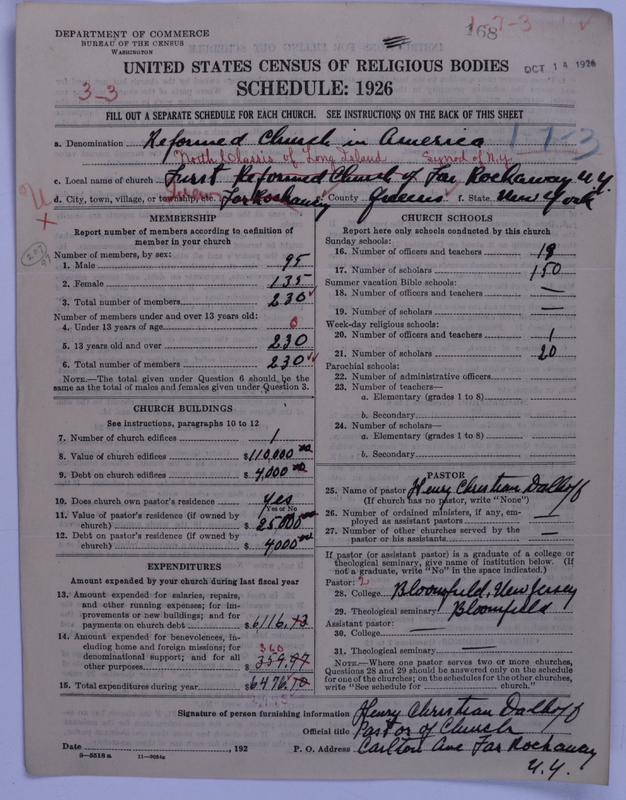 168
1-7-3
DEPARTMENT OF COMMERCE
BUREAU OF THE CENSUS
WASHINGTON
UNITED STATES CENSUS OF RELIGIOUS BODIES
OCT 14 1926
3-3
SCHEDULE: 1926
FILL OUT A SEPARATE SCHEDULE FOR EACH CHURCH. SEE INSTRUCTIONS ON THE BACK OF THIS SHEET
a. Denomination Reformed Church in America
1-7-3
North Classis of Long Island Synod of N.Y.
c. Local name of church First Reformed Church of Far Rockaway N.Y.
d. City, town, village, or township, etc. Far Rockaway County Queens f. State New York
MEMBERSHIP
Report number of members according to definition of
member in your church
Number of members, by sex:
1. Male 95
2. Female 135
3. Total number of members 230
Number of members under and over 13 years old:
4. Under 13 years of age 0
5. 13 years old and over 230
6. Total number of members 230
NOTE.—The total given under Question 6 should be the
same as the total of males and females given under Question 3.
CHURCH BUILDINGS
See instructions, paragraphs 10 to 12
7. Number of church edifices 1
8. Value of church edifices $110,000 00
9. Debt on church edifices $4,000 00
10. Does church own pastor's residence yes
Yes or No
11. Value of pastor's residence (if owned by
church) $25,000 00
12. Debt on pastor's residence (if owned by
church) $4000 00
EXPENDITURES
Amount expended by your church during last fiscal year
13. Amount expended for salaries, repairs,
and other running expenses; for im-
provements or new buildings; and for
payments on church debt $6116.73
14. Amount expended for benevolences, in-
cluding home and foreign missions; for
denominational support; and for all
360
other purposes $359.97
15. Total expenditures during year $6476.70
CHURCH SCHOOLS
Report here only schools conducted by this church
Sunday schools:
16. Number of officers and teachers 18
17. Number of scholars 150
Summer vacation Bible schools:
18. Number of officers and teachers —
19. Number of scholars —
Week-day religious schools:
20. Number of officers and teachers 1
21. Number of scholars 20
Parochial schools:
22. Number of administrative officers
23. Number of teachers—
a. Elementary (grades 1 to 8)
b. Secondary
24. Number of scholars—
a. Elementary (grades 1 to 8)
b. Secondary
PASTOR
25. Name of pastor Henry Christian Dalhoff
(If church has no pastor, write "None")
26. Number of ordained ministers, if any, em-
ployed as assistant pastors —
27. Number of other churches served by the
pastor or his assistants —
If pastor (or assistant pastor) is a graduate of a college or
theological seminary, give name of institution below. (If
not a graduate, write "No" in the space indicated.)
Pastor: 2
28. College Bloomfield, New Jersey
29. Theological seminary Bloomfield
Assistant pastor:
30. College —
31. Theological seminary —
NOTE.—Where one pastor serves two or more churches,
Questions 28 and 29 should be answered only on the schedule
for one of the churches; on the schedules for the other churches,
write "See schedule for church."
Signature of person furnishing information Henry Christian Dalhoff
Official title Pastor of Church
Date , 192
P. O. Address Carlton Ave Far Rockaway
N.Y.
9-5518a
11-9084a